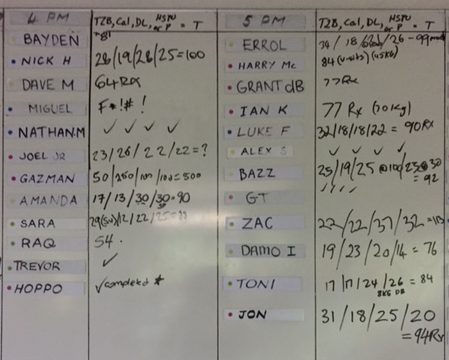 4 PM
T2B, Cal, DL, HSPU or P = T
BAYDEN
"81"
NICK H
28/19/28/25=100
DAVE M
64 Rx
MIGUEL
F*!#!
NATHAN M
✓ ✓ ✓ ✓
JOEL JR
23/26/22/22=?
GAZMAN
50/250/100/100=500
AMANDA
17/13/30/30=90
SARA
12/22/
RAQ
54.
TREVOR
✓
HOPPO
✓completed *
5 PM
T2B, Cal, DL, HSPU or P = T
ERROL
/18/ /26 - 99
HARRY Mc
84
GRANT dB
77 Rx
IAN K
77 Rx (70kg)
LUKE F
32/18/18/22 = 90Rx
ALEX S
✓ ✓ ✓ ✓
BAZZ
25/19/25 @100/23@30 = 92
GT
✓ ✓ ✓ ✓
ZAC
22/22/37/32 =
DAMO I
19/23/20/14 = 76
TONI
17/17/24/26 = 84
8KG DB
JON
31/18/25/20
= 94Rx